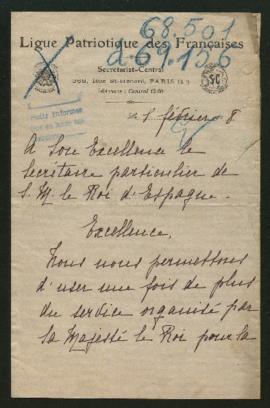 68.501
d. 69.156
Ligue Patriotique des Françaises
Secrétariat-Central
368, Rue St-Honoré, PARIS (1er)
Téléphone : Central 13-60
le 5 février 8
A Son Excellence le
Secrétaire particulier de
S. M. le Roi d'Espagne.
Excellence,
Nous nous permettons
d'user une fois de plus
du service organisé par
Sa Majesté le Roi pour la